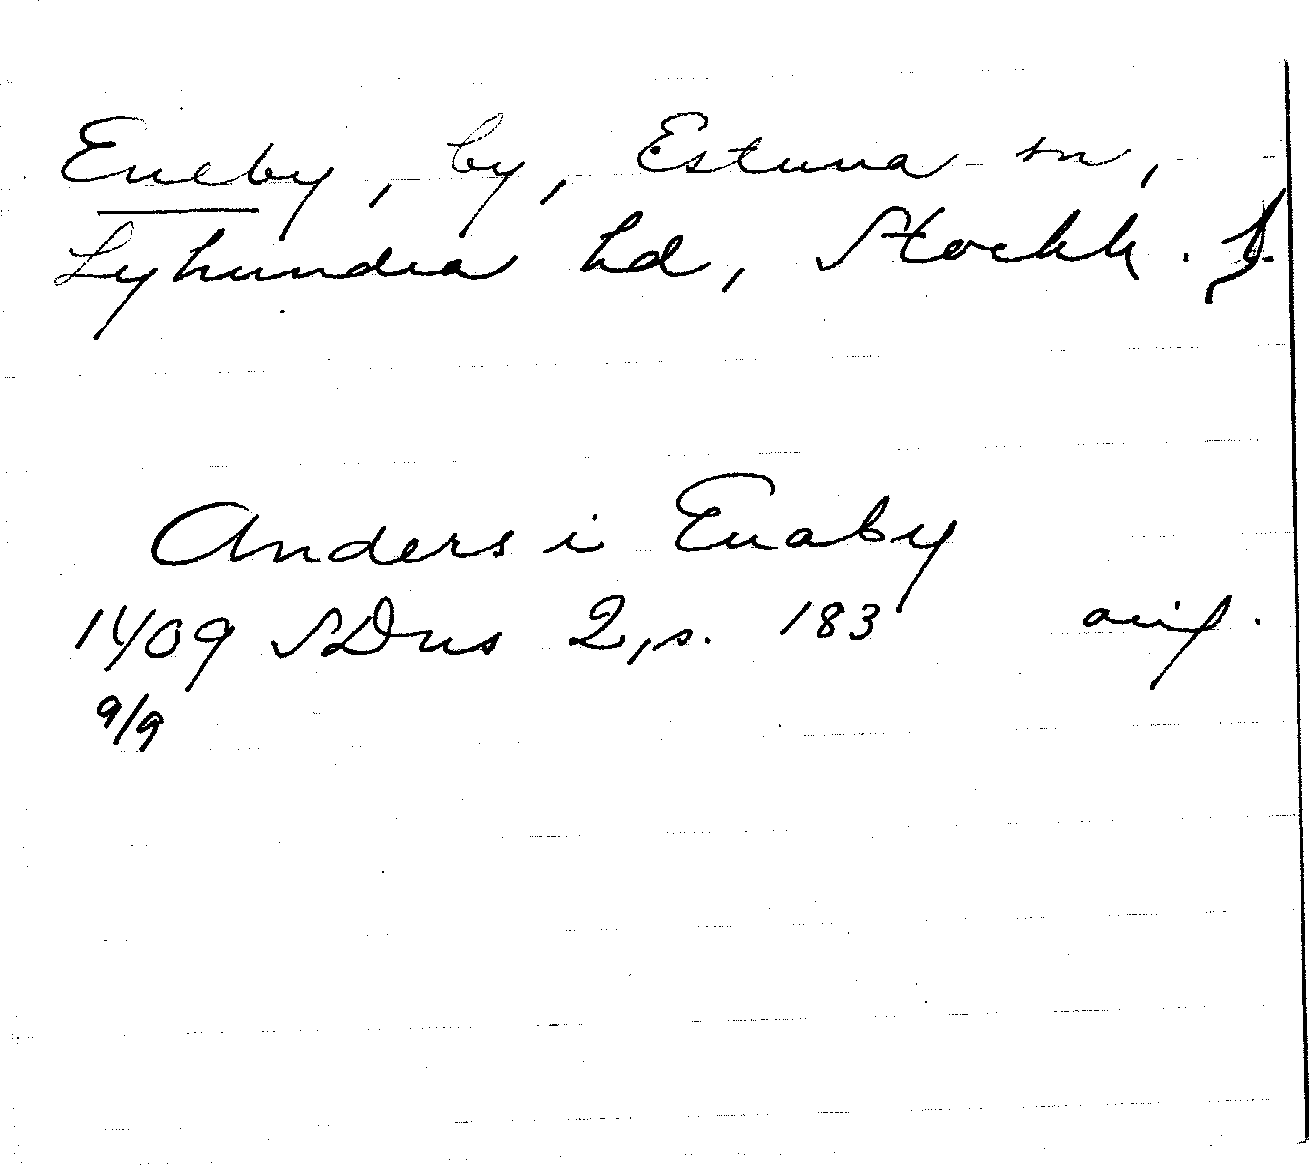 Eneby, by, Estuna sn,
Lyhundra hd, Stockh. l.
Anders i Enaby
1409 SDns 2, s. 183 avig.
9/9